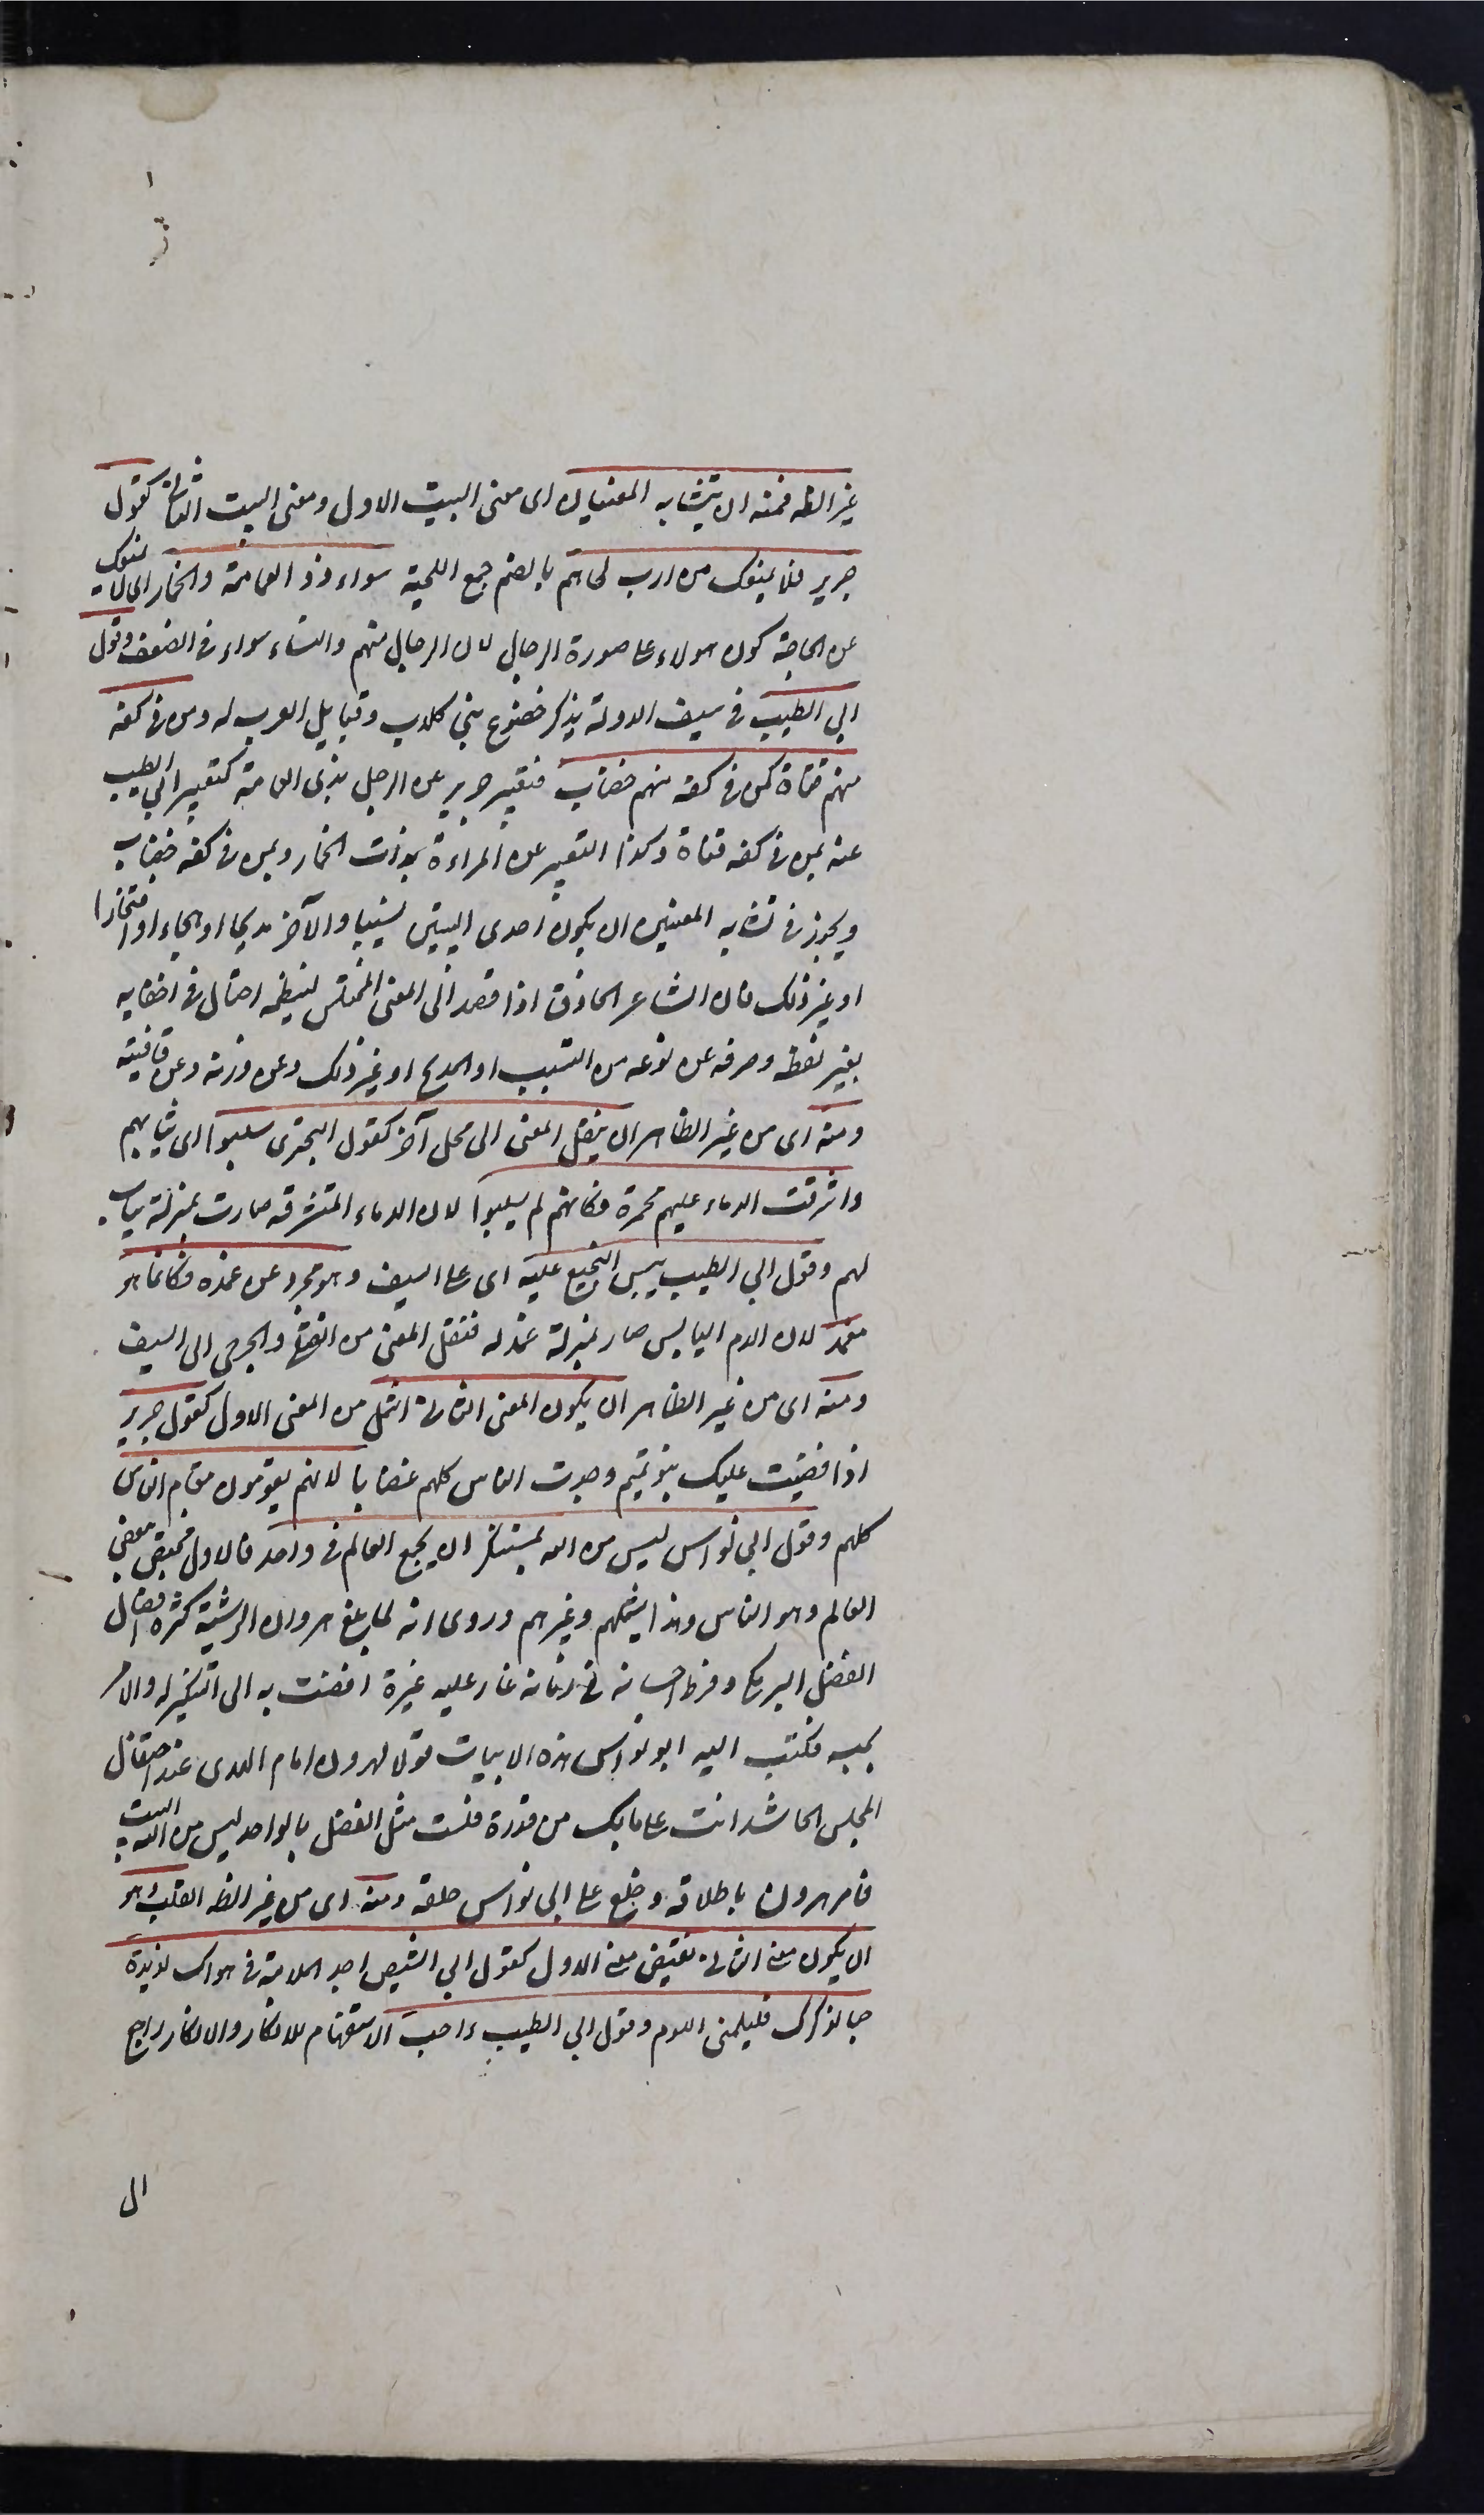 غير الظه فمنه ان يتشابه المعنيان اى معنى البيت الاول ومعنى البيت الثانى كقول
جرير فلا يمنعك من ارب لحاهم بالضم جمع اللحية سواء ذو العمامة والخمار اى لا يمنعك
عن الحاجة كون هولاء على صورة الرجال لان الرجال منهم والنساء سواء فى الضعف وقول
ابى الطيب فى سيف الدولة يذكر خضوع بنى كلاب وقبايل العرب له ومن فى كفه
منهم قناة كمن فى كفه منهم خضاب فتعبير جرير عن الرجل بذى العمامة كتعبير ابى الطيب
عنه بمن فى كفه قناة وكذا التعبير عن المراءة بذات الخمار وبمن فى كفه خضاب
ويجوز فى تشابه المعنيين ان يكون احدى البيتين نسيبا والآخر مديحا او هجاء او افتخارا
او غير ذلك فان الشاعر الحاذق اذا قصد الى المعنى المختلس لينظمه احتال فى اخفايه
بغير لفظه وصرفه عن نوعه من النسيب او المديح او غير ذلك وعن وزنه وعن قافيته
ومنه اى من غير الظاهر ان ينقل المعنى الى محل آخر كقول البحترى سلبوا اى ثيابهم
واشرقت الدماء عليهم محمرة فكانهم لم يسلبوا لان الدماء المشرقه صارت بمنزلة ثياب
لهم وقول ابى الطيب يبس النجيع عليه اى على السيف وهو مجرد عن غمده فكانما هو
مغمد لان الدم اليابس صار بمنزلة غمد له فنقل المعنى من القتلى والجرحى الى السيف
ومنه اى من غير الظاهر ان يكون المعنى الثانى اشمل من المعنى الاول كقول جرير
اذا غضبت عليك بنو تميم وجدت الناس كلهم غضابا لانهم يقومون مقام الناس
كلهم وقول ابى نواس ليس من الله بمستنكر ان يجمع العالم فى واحد فالاول يختص ببعض
العالم وهو الناس وهذا يشملهم وغيرهم وروى انه لما بلغ هرون الرشيد كثرة افضال
الفضل البرمكى وفرط احسانه فى زمانه غار عليه غيرة افضت به الى التنكير له والامر
بحبسه فكتب اليه ابو نواس هذه الابيات قولا لهرون امام الهدى عند احتفال
المجلس الحاشد انت على ما بك من قدرة فلست مثل الفضل بالواحد ليس من الله البيت
فامر هرون باطلاقه وخلع على ابى نواس خلعة ومنه اى من غير الظه القلب وهو
ان يكون معنى الثانى نقيض معنى الاول كقول ابى الشيص اجد الملامة فى هواك لذيذة
حبا لذكرك فليلمنى اللوم وقول ابى الطيب ءاحبه الاستفهام للانكار والانكار راجع
الى